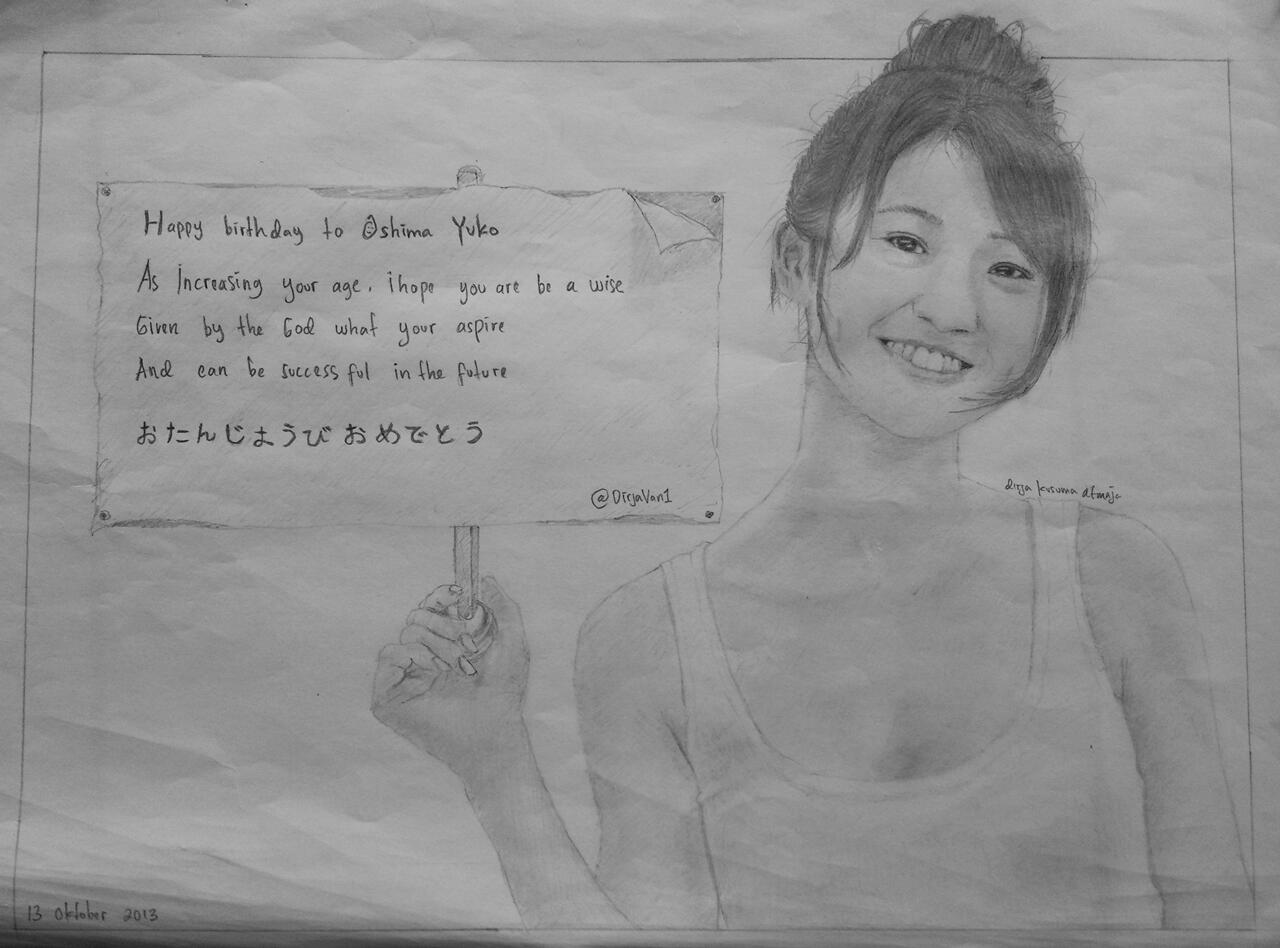 Happy birthday to Oshima Yuko
As Increasing your age, i hope you are be a wise
Given by the God what your aspire
And can be success ful in the future
おたんじょうび おめでとう
@DirjaVan1
dirja kusuma atmaja
13 Oktober 2013